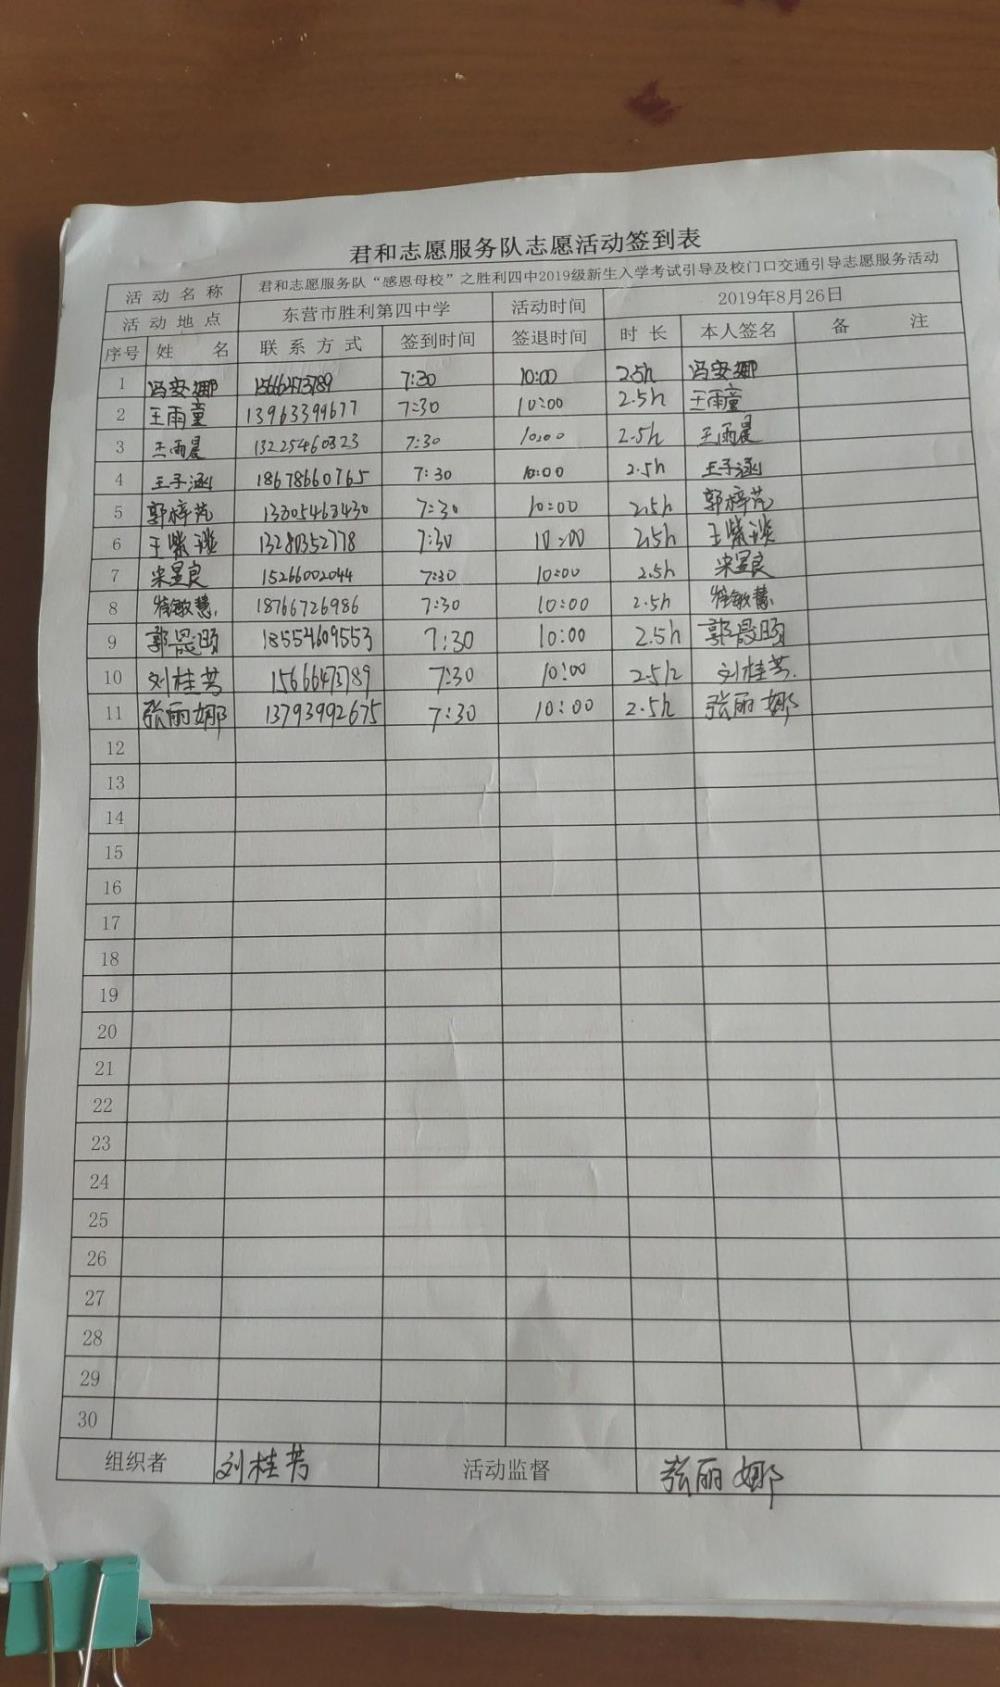 君和志愿服务队志愿活动签到表
活动名称 君和志愿服务队“感恩母校”之胜利四中2019级新生入学考试引导及校门口交通引导志愿服务活动
活动地点 东营市胜利第四中学 活动时间 2019年8月26日
序号 姓名 联系方式 签到时间 签退时间 时长 本人签名 备注
1 冯安娜 15666473789 7:30 10:00 2.5h 冯安娜
2 王雨童 13963399677 7:30 10:00 2.5h 王雨童
3 王雨晨 13225460323 7:30 10:00 2.5h 王雨晨
4 王子涵 18678660765 7:30 10:00 2.5h 王子涵
5 郭梓芃 13305463430 7:30 10:00 2.5h 郭梓芃
6 王紫琰 13280352778 7:30 10:00 2.5h 王紫琰
7 宋昱良 15266002044 7:30 10:00 2.5h 宋昱良
8 敏慧 18766726986 7:30 10:00 2.5h 敏慧
9 郭晟颐 18554609553 7:30 10:00 2.5h 郭晟颐
10 刘桂芳 15666473789 7:30 10:00 2.5h 刘桂芳
11 张丽娜 13793992675 7:30 10:00 2.5h 张丽娜
12
13
14
15
16
17
18
19
20
21
22
23
24
25
26
27
28
29
30
组织者 刘桂芳 活动监督 张丽娜